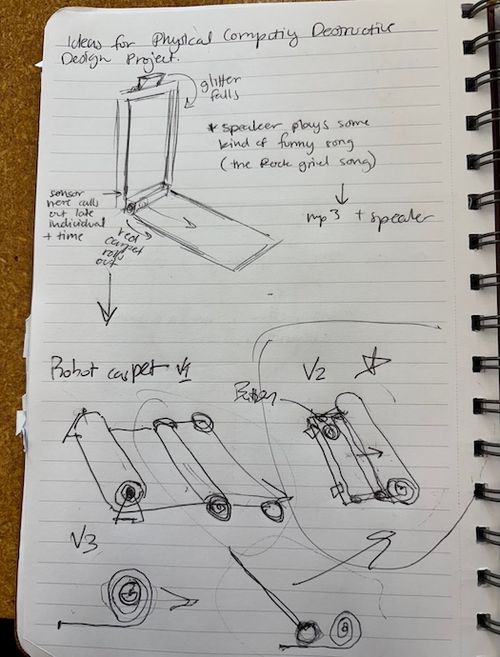 Ideas for Physical Computing Destructive
Design Project.
glitter
falls
* speaker plays some
kind of funny song
(the Rock grind song)
mp3 + speaker
sensor
here calls
out late
individual
+ time
red
carpet
rolls
out
Robot carpet v1
V2
V3